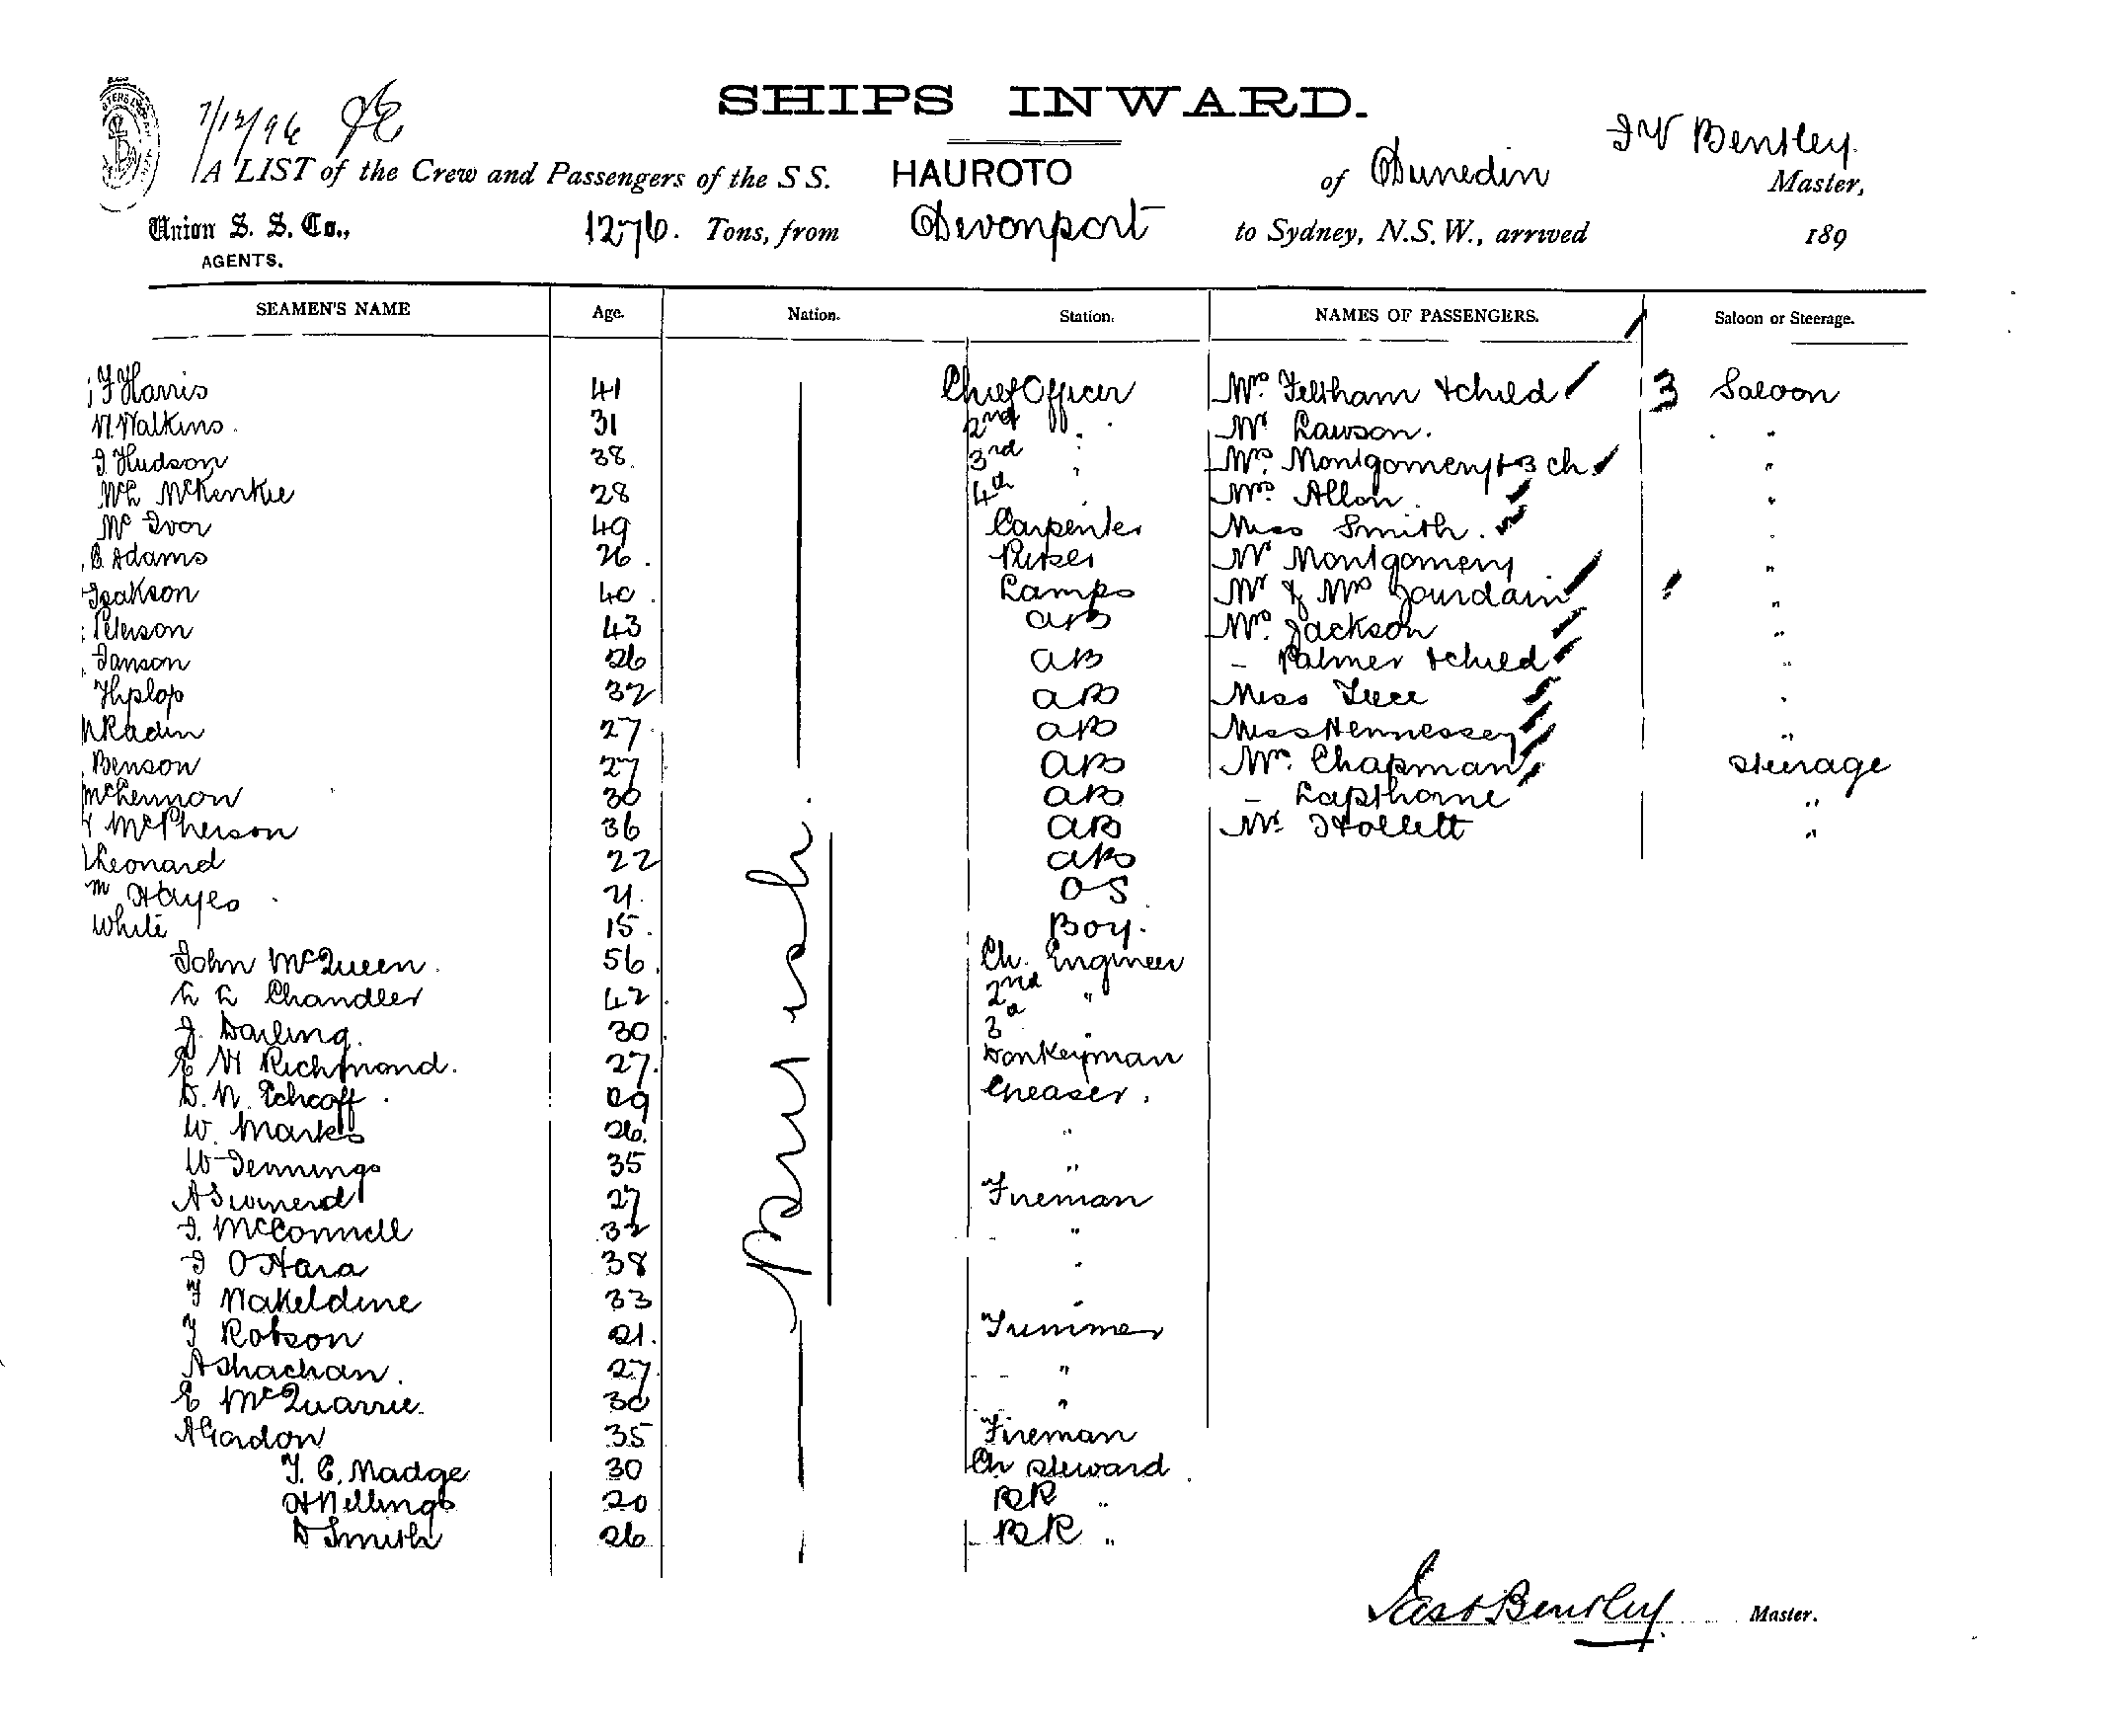 7/12/96
SHIPS INWARD.
J W Bentley
A LIST of the Crew and Passengers of the S S. HAUROTO of Dunedin Master,
Union S. S. Co., 1276. Tons, from Devonport to Sydney, N.S.W., arrived 189
AGENTS.
SEAMEN'S NAME Age. Nation. Station. NAMES OF PASSENGERS. Saloon or Steerage.
F Harris 41 Chief Officer Mrs. Feltham & child 3 Saloon
Watkins 31 2nd " Mr Lawson. "
J Hudson 38 3rd " Mrs. Montgomery & 3 ch. "
McKenkie 28 4th " Mrs Allon "
Mc Ivor 49 Carpenter Miss Smith. "
Adams 26. Purser Mr Montgomery "
Isakson 40. Lamps Mr & Mrs Jourdain "
Peterson 43 AB Mrs. Jackson "
Janson 26 AB - Palmer & child "
Hyslop 32 AB Miss Luce "
27 AB Miss Hennessey "
Benson 27 AB Mrs. Chapman Steerage
McLennon 30 AB - Lapthorne "
McPherson 36 AB Mr. Hollett "
Leonard 22 AB
Hayes 21. OS
White 15. Boy.
British
John McQueen. 56. Ch. Engineer
Chandler 42. 2nd "
J. Darling. 30. 3d "
E W Richmond. 27. Donkeyman
D. N. 29 Greaser.
W. Marks 26. "
W Jennings 35 "
27 Fireman
J. McConnell 32 "
J O'Hara 38 "
F Wakeldine 33 "
F Robson 21. Trimmer
A Strachan. 27. "
E McQuarrie. 30 "
A Gordon 35 Fireman
F. C. Madge 30 Ch Steward
H Wellings 20 BR "
D Smith 26 BR "
Bentley Master.